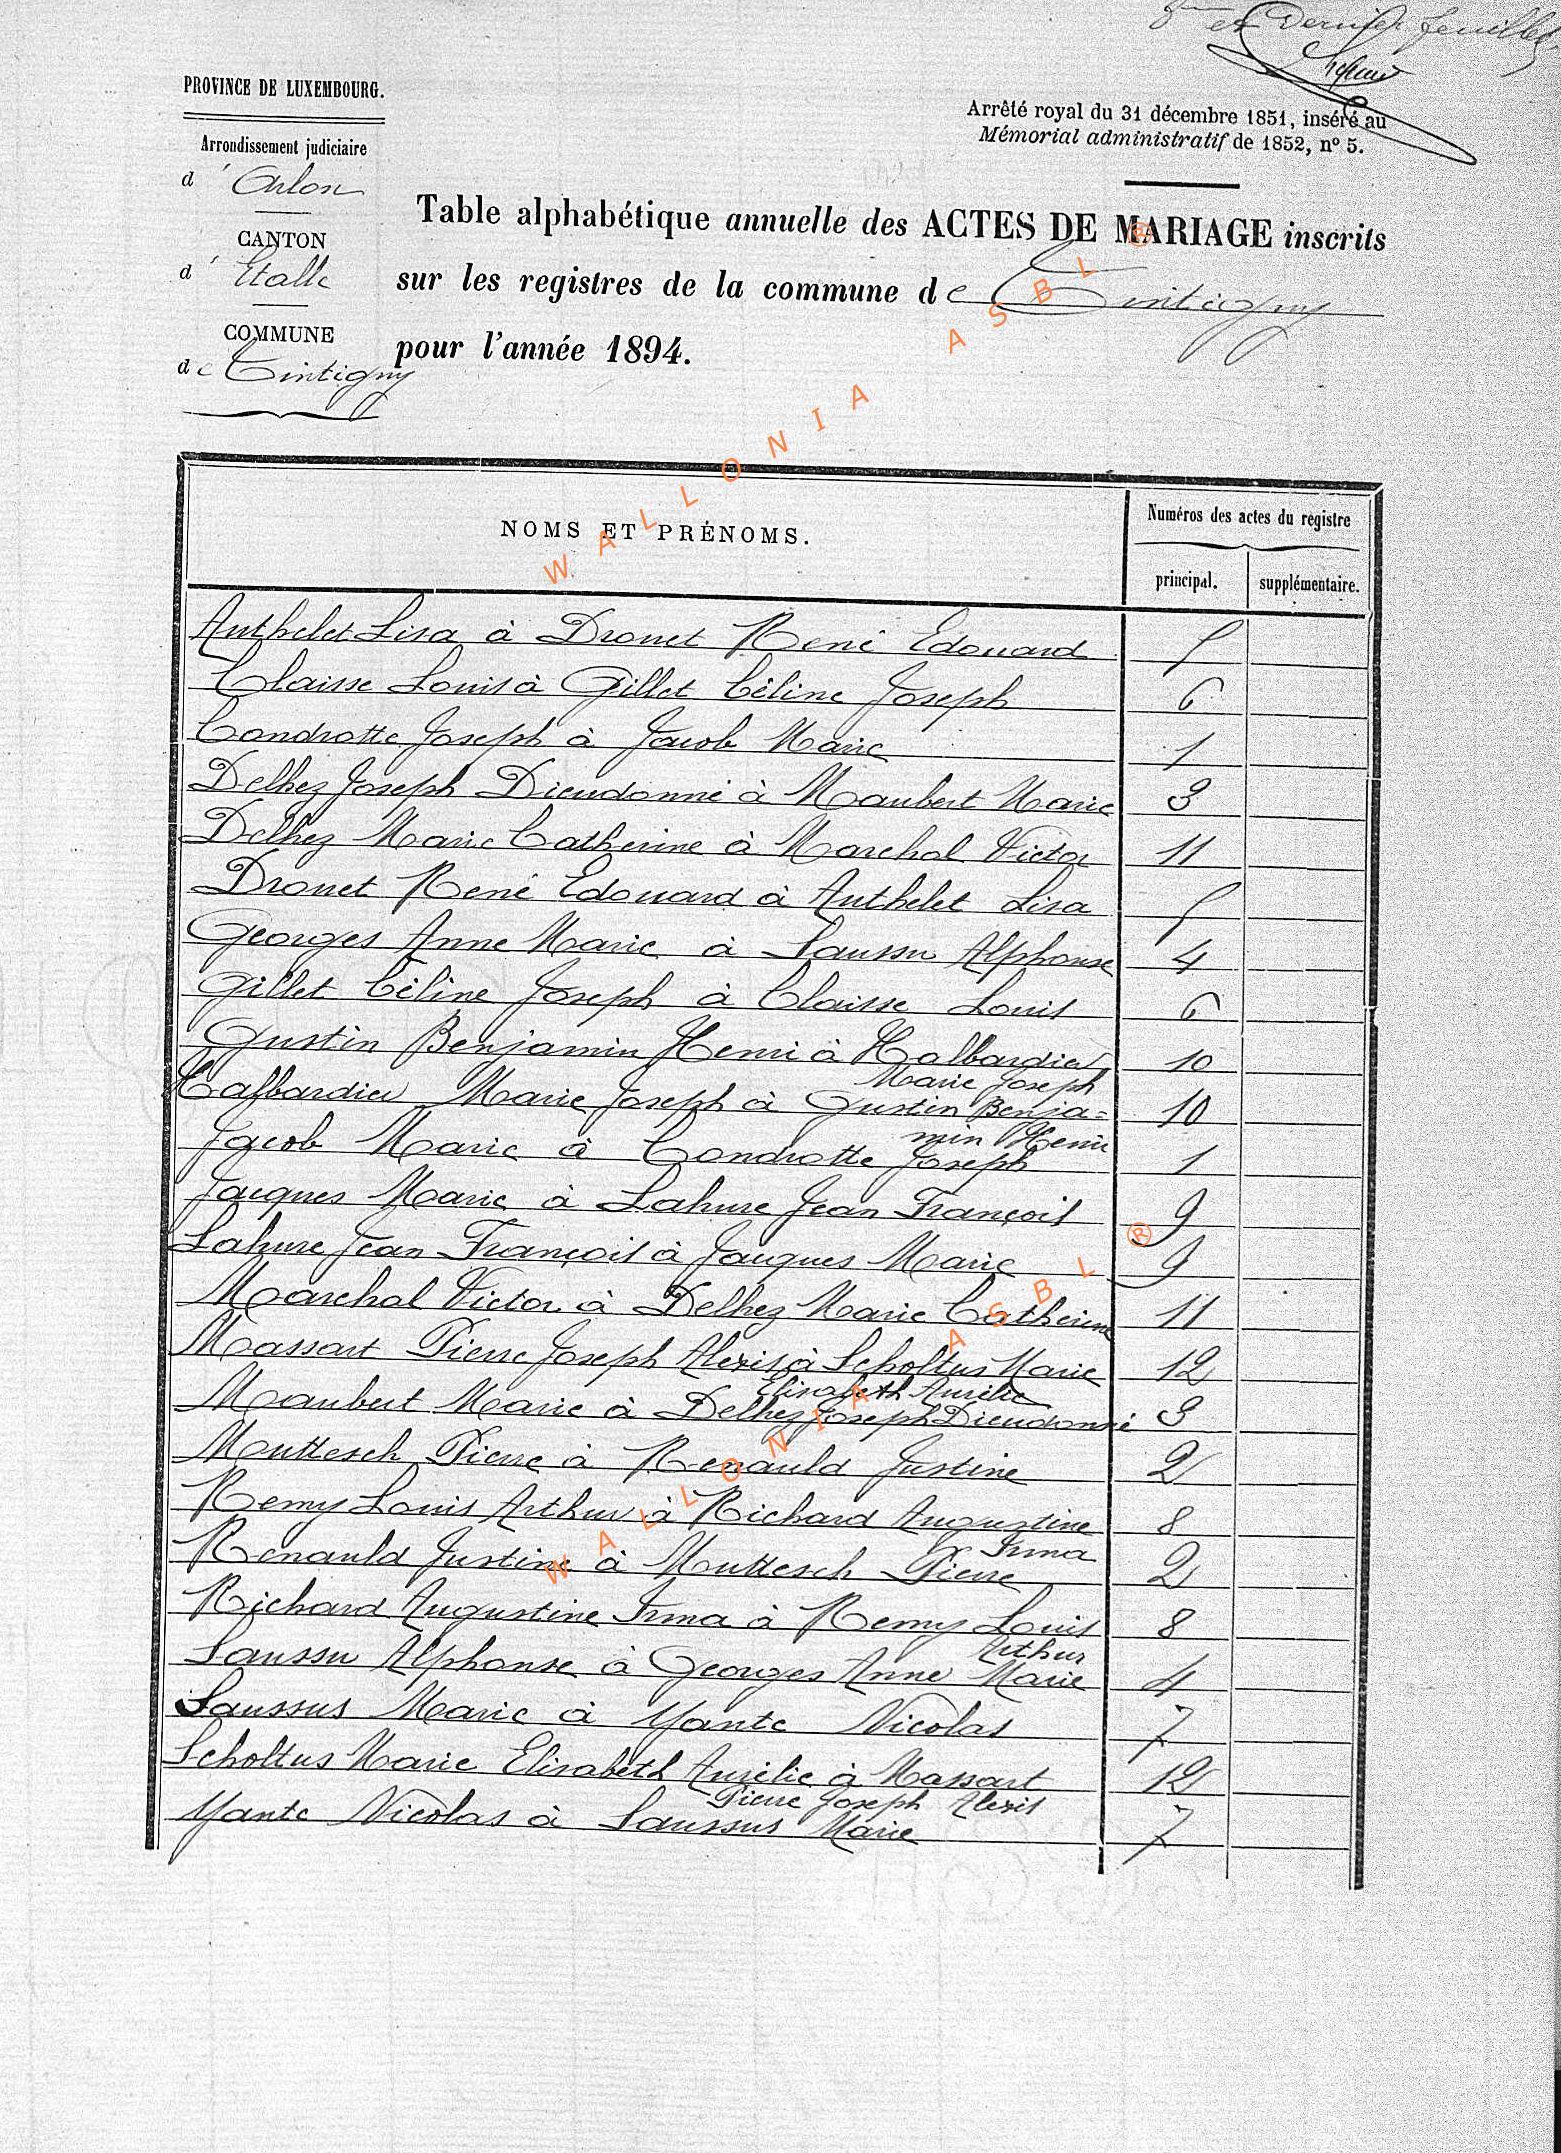 et Dernier feuillet
PROVINCE DE LUXEMBOURG.
Arrêté royal du 31 décembre 1851, inséré au
Mémorial administratif de 1852, nº 5.
Arrondissement judiciaire
d'Arlon
CANTON
d'Etalle
COMMUNE
de Tintigny
Table alphabétique annuelle des ACTES DE MARIAGE inscrits
sur les registres de la commune de Tintigny
pour l'année 1894.
NOMS ET PRÉNOMS.
Numéros des actes du registre
principal. supplémentaire.
Authelet Lisa à Drouet René Edouard 5
Claisse Louis à Gillet Céline Joseph 6
Condrotte Joseph à Jacob Marie 1
Delhez Joseph Dieudonné à Maubert Marie 3
Delhez Marie Catherine à Marchal Victor 11
Drouet René Edouard à Authelet Lisa 5
Georges Anne Marie à Saussu Alphonse 4
Gillet Céline Joseph à Claisse Louis 6
Gustin Benjamin Henri à Halbardier 10
Marie Joseph
Halbardier Marie Joseph à Gustin Benja= 10
min Henri
Jacob Marie à Condrotte Joseph 1
Jacques Marie à Lahure Jean François 9
Lahure Jean François à Jacques Marie 9
Marchal Victor à Delhez Marie Catherine 11
Massart Pierre Joseph Alexis à Scholtus Marie 12
Elisabeth Aurélie
Maubert Marie à Delhez Joseph Dieudonné 3
Muttesch Pierre à Renauld Justine 2
Remy Louis Arthur à Richard Augustine 8
Irma
Renauld Justine à Muttesch Pierre 2
Richard Augustine Irma à Remy Louis 8
Arthur
Saussu Alphonse à Georges Anne Marie 4
Saussus Marie à Yante Nicolas 7
Scholtus Marie Elisabeth Aurélie à Massart 12
Pierre Joseph Alexis
Yante Nicolas à Saussus Marie 7
WALLONIA ASBL ®
WALLONIA ASBL ®